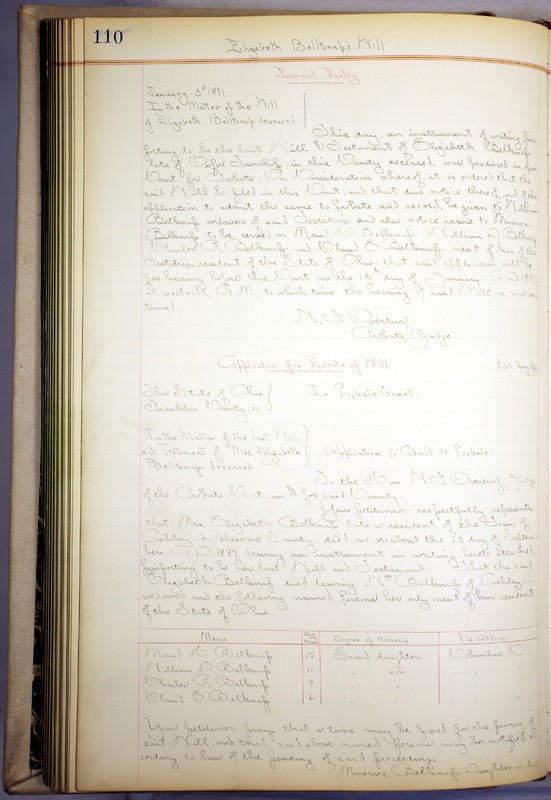 110
Elizabeth Belknap's Will
Journal Entry
January 3d 1891.
In the Matter of the Will
of Elizabeth Belknap deceased
This day, an instrument of writing, pur-
porting to be the last Will & Testament of Elizabeth Belknap
late of Township in this County, deceased, was produced in open
Court for Probate, On Consideration whereof, it is ordered that the
said Will be filed in this Court, and that due notice thereof, and of the
application to admit the same to probate and record, be given to William
Belknap widower of said Testatrix, and also notice issue to Minerva
Belknap to be served on Maud H. Belknap. William D. Belknap
Charles R. Belknap. and Claud O. Belknap next of kin of the
Testatrix, resident of the State of Ohio, that said application will be
for hearing before this Court on the day of January A.D. 1891.
at o'clock A.M., to which time the hearing of said Will, is now con-
tinued.
N. F. Overturf
Probate Judge
Application for Probate of Will
The State of Ohio
Franklin County, ss.
In Probate Court.
In the Matter of the last Will
and Testament of Mrs. Elizabeth
Belknap deceased
Application to Admit to Probate.
To the Hon. N. F. Overturf Judge
of the Probate Court in & for said County
Your petitioner respectfully represents
that Mrs. Elizabeth Belknap late a resident of the Town of
Ashley. Delaware County. died on or about the 28 day of Septem-
ber A.D. 1889, leaving an instrument in writing, hereto attached,
purporting to be her last Will and Testament. That the said
Elizabeth Belknap died leaving Wm Belknap of Ashley O.
widower and the following named persons her only next of kin resident
of the State of Ohio.
Name Age Degree of Kinship P.O. Address
Maud H. Belknap 15 Grand daughter Columbus O.
William D. Belknap 11 " son " "
Charles R. Belknap 9 " " " "
Claud O. Belknap 6 " " " "
Your petitioner prays that a time may be fixed for the proving of
said Will, and that said above named persons may be notified ac-
cording to law of the pending of said proceedings
Minerva Belknap. Daughter-in-law